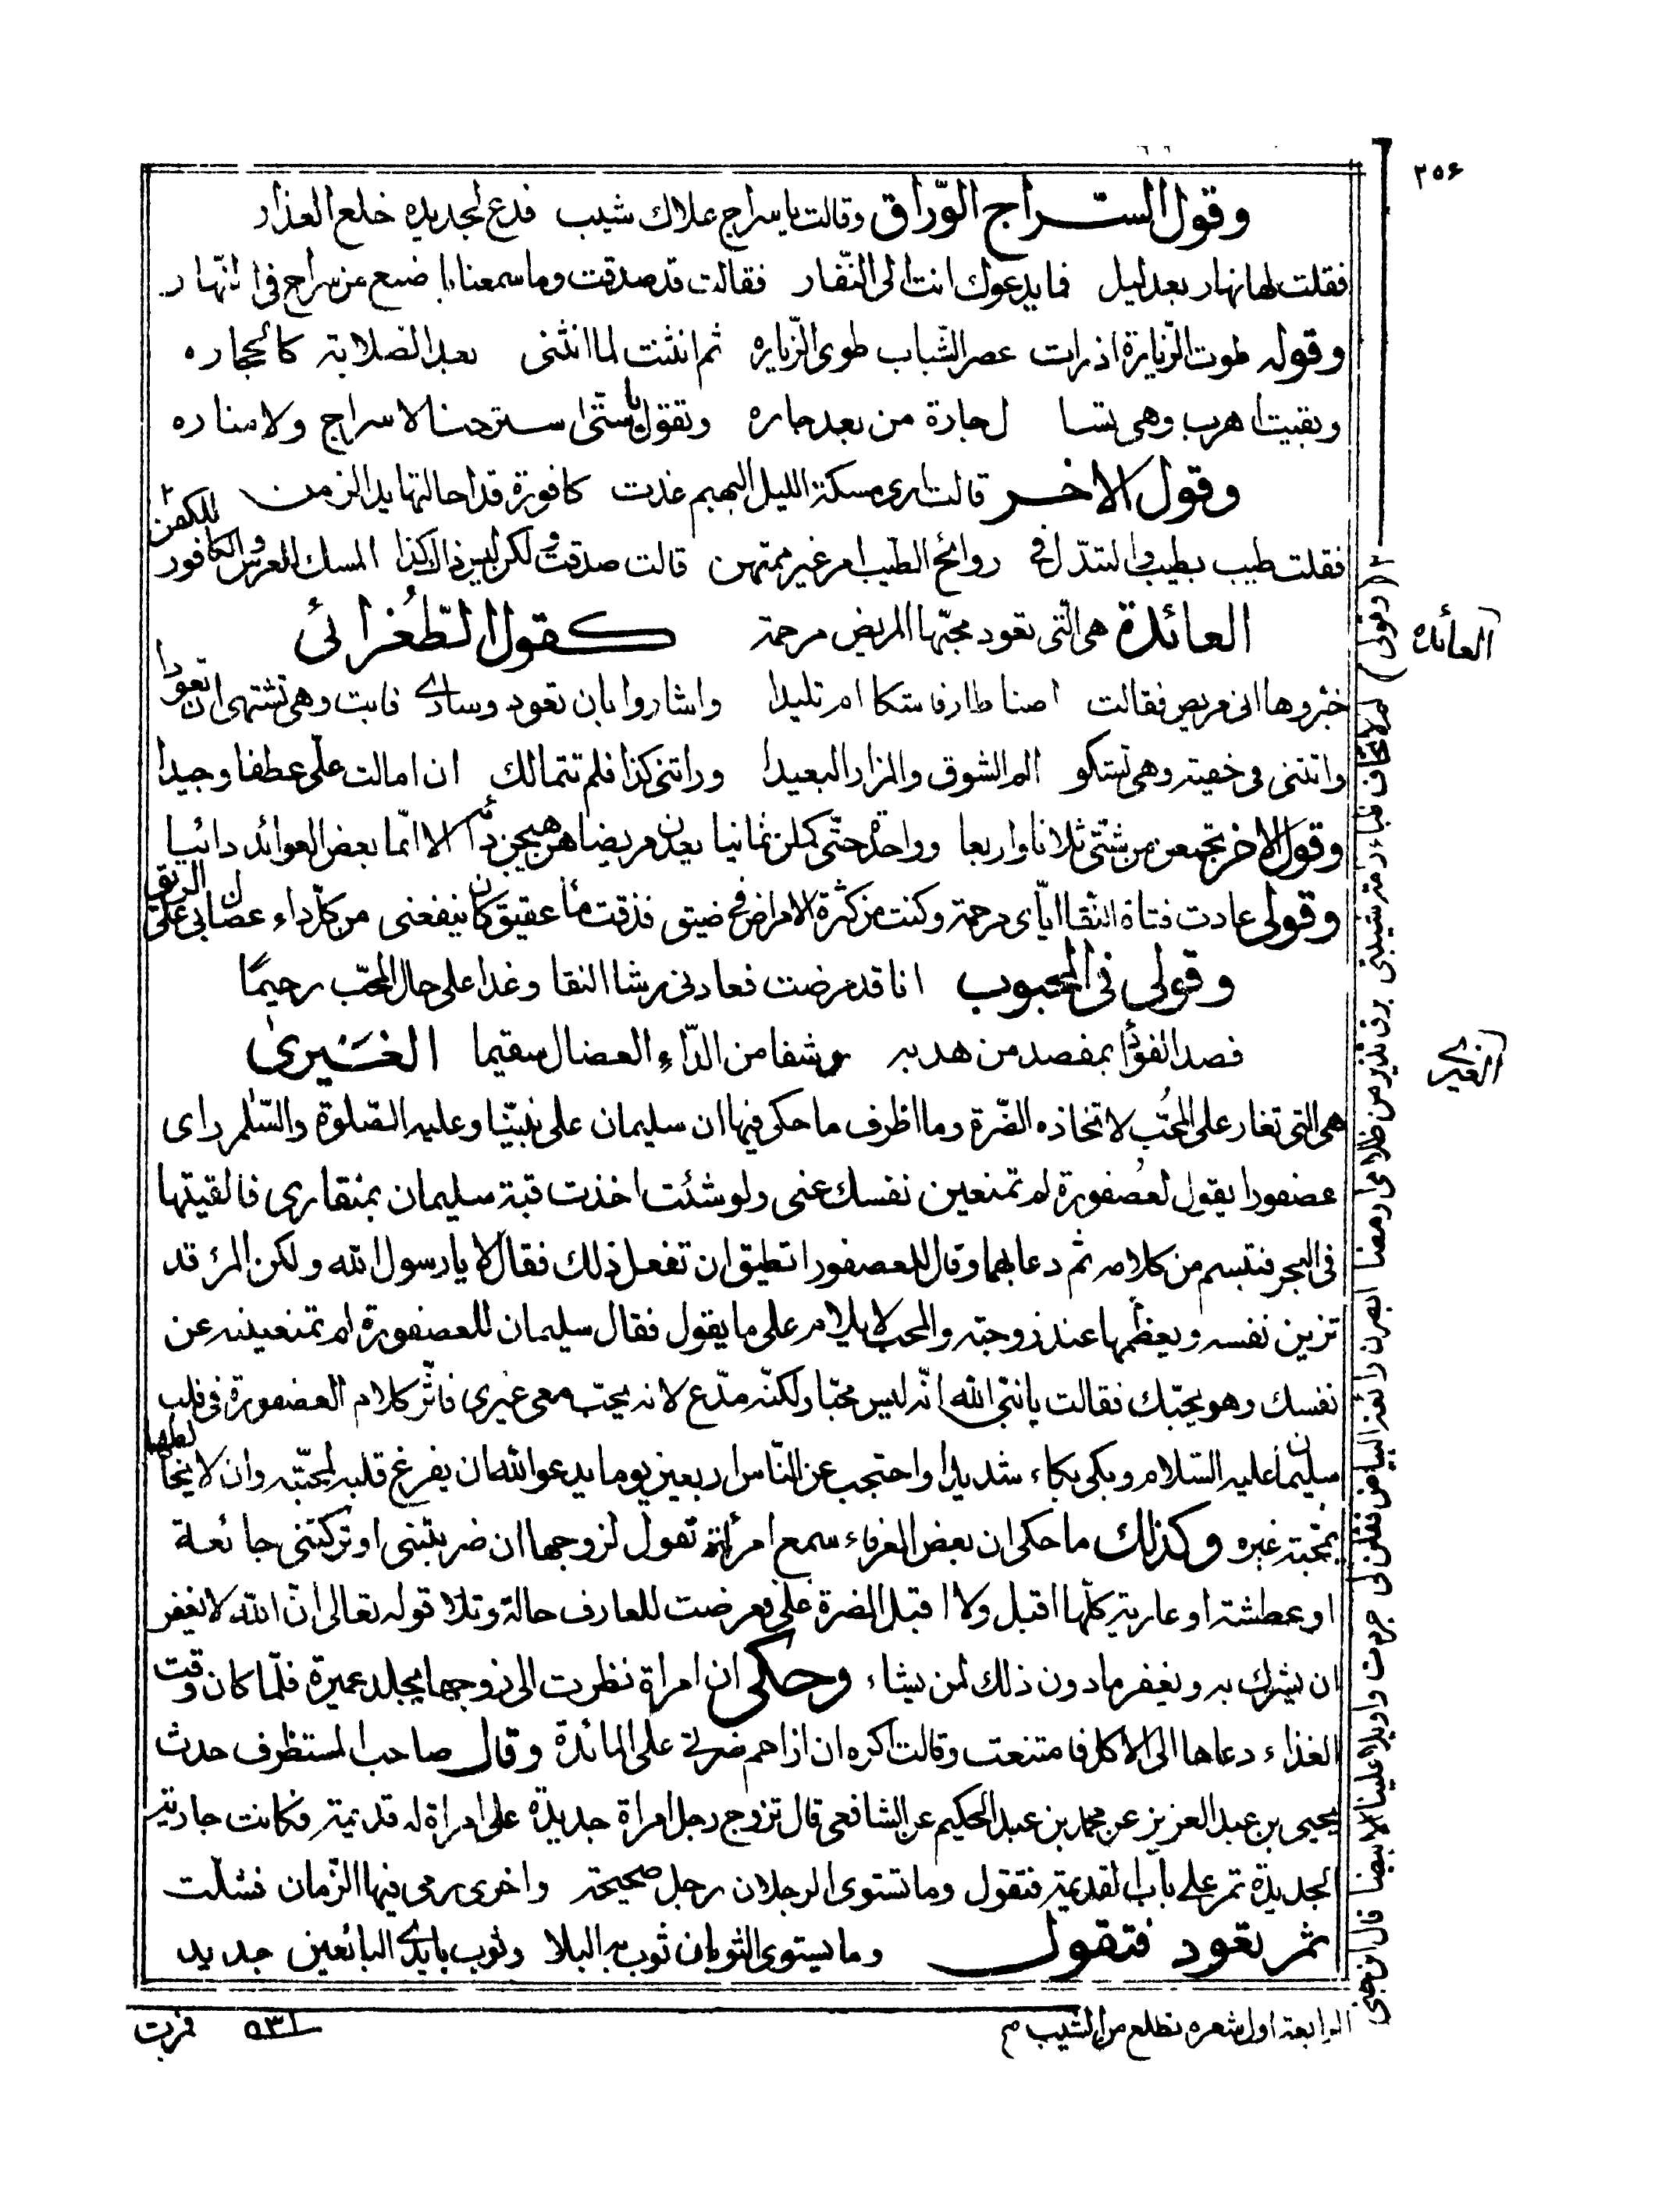 ٢٥٦
وقول السراج الورّاق وقالت يا سراج علاك شيب فدع لجديده خلع العذار
فقلت لها نهار بعد ليل فما يدعوك انت الى النّفار فقالت قد صدقت وما سمعنا باضيع من سراج فى انّهار
وقوله طوت الزّيارة اذ رات عصر الشّباب طوى الزّياره ثم انثنت لما انثنى بعد الصّلابة كالحجاره
وبقيت اهرب وهى تسا ل جارة من بعد جاره وتقول يا ستى استرحنا لا سراج ولا مناره
وقول الاخر قالت ارى مسكة الليل البهيم غدت كافورة قد احالتها يد الزمن
فقلت طيب بطيب والتبدّل فى روائح الطيب امر غير ممتهن قالت صدقت ولكن ليس ذاك كذا المسك للعرس والكافور للكفن
العائدة
العائدة هى الّتى تعود محبّها المريض مرحمة كقول الطّغرائى
خبّروها انى مريض فقالت اضنا طارفا شكا ام تليدا واشاروا بان تعود وسادى فابت وهى تشتهى ان تعودا
واتتنى فى خفية وهى تشكو الم الشوق والمزار البعيدا وراتنى كذا فلم تتمالك ان امالت علىّ عطفا وجيدا
وقول الاخر تجمعن من شتّى ثلاثا واربعا وواحدة حتّى كملن ثمانيا يعدن مريضا هن هيجن داءه الا انّما بعض العوائد دائيا
وقولى عادت فتاة النقا ايّاى مرحمة وكنت من كثرة الامراض فى ضيق فذقت ماء عقيق كان ينفعنى من كلّ داء عضال ابى على الريق
وقولى فى المحبوب انا قد مرضت فعادنى رشا النقا وغدا على حال المحبّ رحيمًا
فصد الفؤاد بمفصد من هدبه وشفا من الدّاء العضال سقيما الغيرى
الغيرى
هى التى تغار على المحبّ لاتخاذه الضّرة وما اظرف ما حكى فيها ان سليمان على نبيّنا وعليه الصّلوة والسّلم راى
عصفورا يقول لعصفورة لم تمنعين نفسك عنى ولو شئت اخذت قبة سليمان بمنقارى فالقيتها
فى البحر فتبسم من كلامه ثم دعا بهما وقال للعصفور اتطيق ان تفعل ذلك فقال لا يا رسول الله ولكن المرء قد
تزين نفسه ويعظمها عند زوجته والمحب لا يلام على ما يقول فقال سليمان للعصفورة لم تمنعينه عن
نفسك وهو يحبّك فقالت يا نبىّ الله انّه ليس محبّا ولكنّه مدّع لانه يحبّ معى غيرى فاثّر كلام العصفورة فى قلب
سليمان عليه السّلام وبكى بكاء شديدا واحتجب عن النّاس اربعين يوما يدعو الله ان يفرغ قلبه لمحبّته وان لا يخالطها
بمحبّة غيره وكذلك ما حكى ان بعض العرفاء سمع امرأة تقول لزوجها ان ضربتنى او تركتنى جائعة
او عطشة او عارية كلّها اقبل ولا اقبل الضرة علىّ فعرضت للعارف حالة وتلا قوله تعالى انّ الله لا يغفر
ان يشرك به ويغفر ما دون ذلك لمن يشاء وحكى ان امراة نظرت الى زوجها يجلد عميرة فلمّا كان وقت
الغذاء دعاها الى الاكل فامتنعت وقالت اكره ان ازاحم ضرتى على المائدة وقال صاحب المستظرف حدث
يحيى بن عبد العزيز عن محمد بن عبد الحكيم عن الشافعى قال تزوج رجل امراة جديدة على امراة له قديمة فكانت جارية
الجديدة تمر على باب القديمة فتقول وما تستوى الرجلان رجل صحيحة واخرى رمى فيها الزّمان فشلّت
ثم تعود فتقول وما يستوى الثوبان ثوب به البلا وثوب بايدى البائعين جديد
٢ (وقولى) ابصرن رائعة البياض قال ابن جنى
الرابعة اول شعره تطلع من الشيب م
فمرت